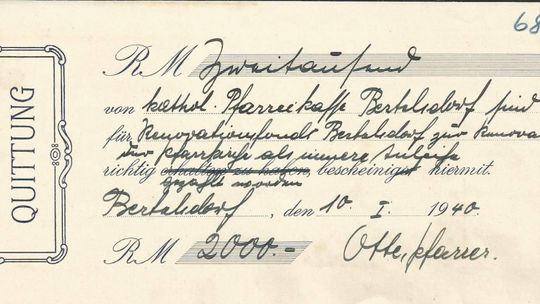 68
QUITTUNG
RM Zweitausend
von kathol. Pfarreikasse Bertelsdorf sind
für Renovationsfonds Bertelsdorf zur Renova
der Pfarrkirche als innere Anleihe
richtig erhalten zu haben bescheinigt hiermit.
gezahlt worden
Bertelsdorf, den 10. I. 1940.
RM 2000.- Otte, Pfarrer.